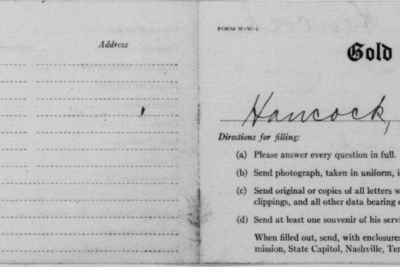 Address
FORM W-W-1
Gold
Hancock,
Directions for filling:
(a) Please answer every question in full.
(b) Send photograph, taken in uniform, i
(c) Send original or copies of all letters w
clippings, and all other data bearing o
(d) Send at least one souvenir of his servi
When filled out, send, with enclosures
mission, State Capitol, Nashville, Ten